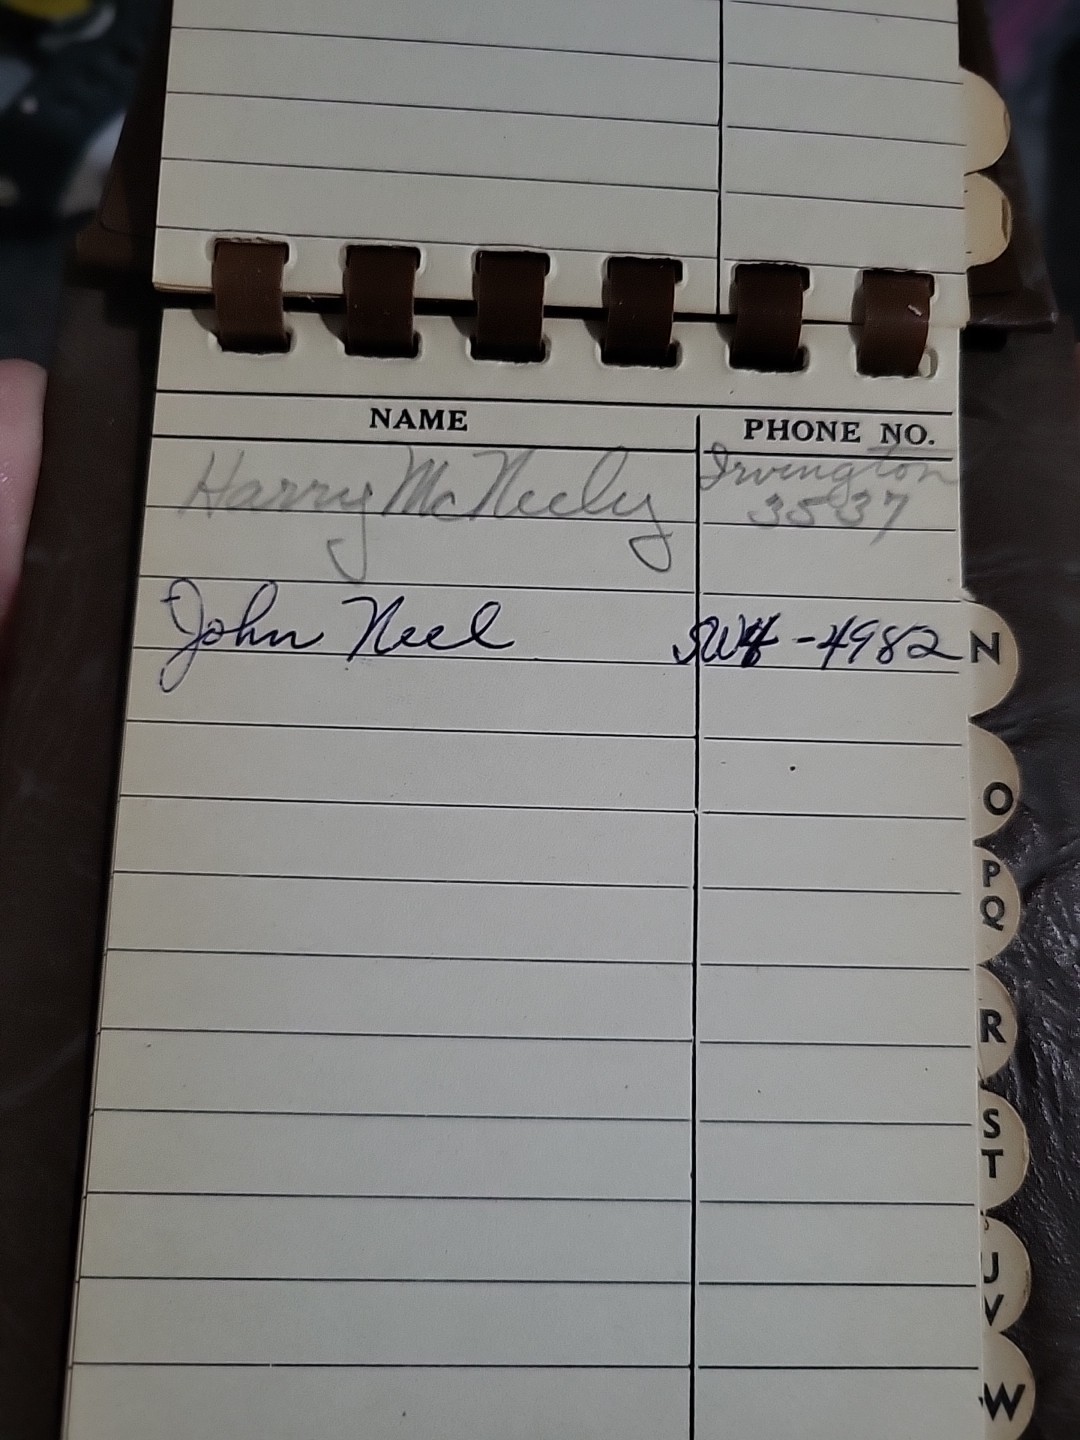 NAME PHONE NO.
Harry McNeely Irvington
3537
John Neel SW4-4982
N
O
P
Q
R
S
T
U
V
W